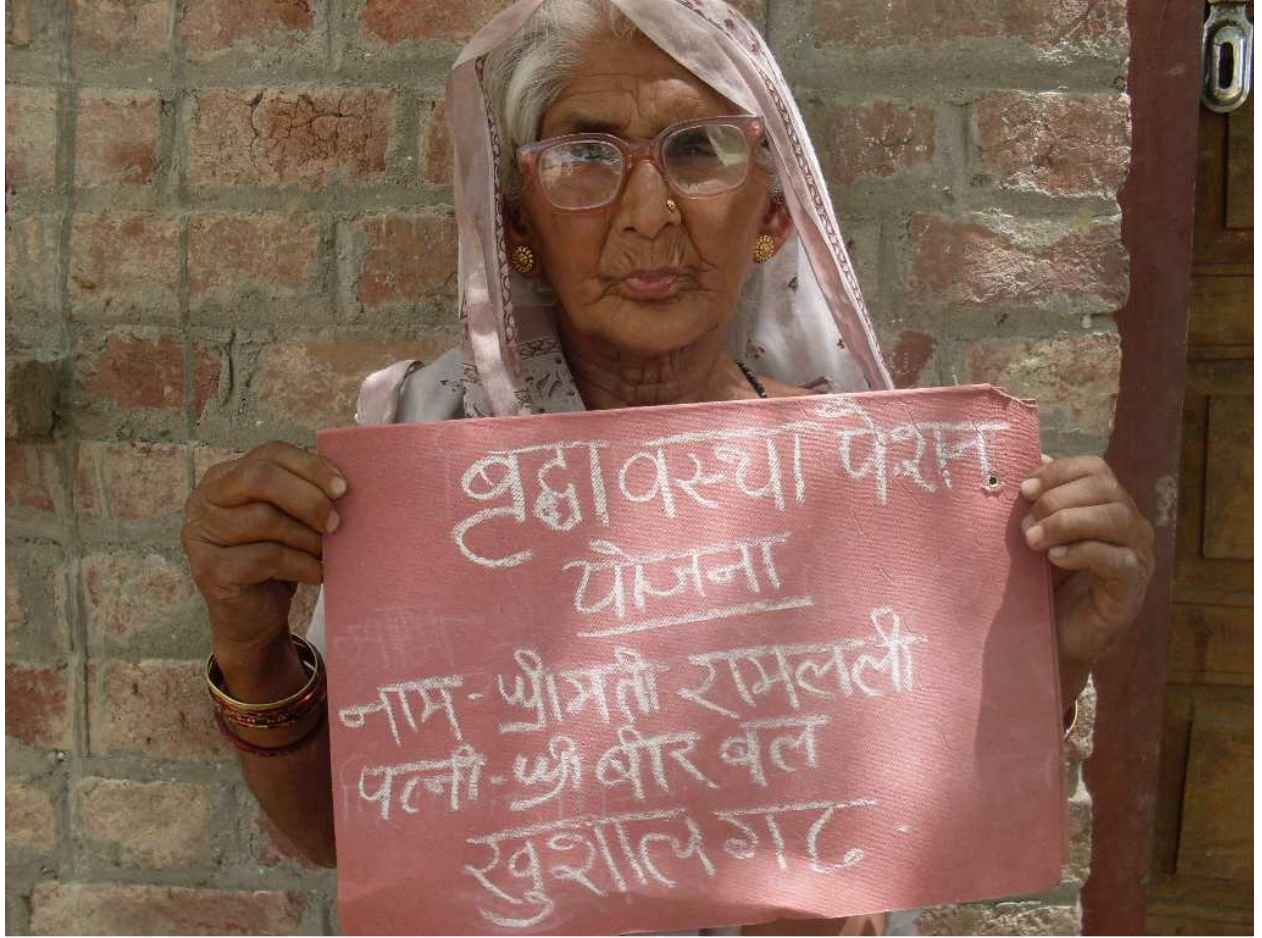 बृद्धावस्था पेंशन
योजना
नाम-श्रीमती रामलली
पत्नी-श्री बीरबल
खुशालगढ